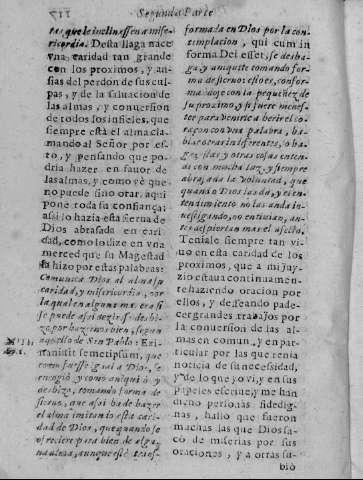 Segunda Parte
tas, que le inclinassen a mise-
ricordia. Desta llaga nace
vna caridad tan grande
con los proximos, y an-
sias del perdon de sus cul-
pas, y de la saluacion de
las almas, y conuersion
de todos los infieles, que
siempre està el alma cla-
mando al Señor por es-
to, y pensando que po-
dria hazer en fauor de
las almas, y como vè que
no puede sino orar, aqui
pone toda su confiança:
assi lo hazia esta sierua de
Dios abrasada en cari-
dad, como lo dize en vna
merced que su Magestad
la hizo por estas palabras:
Comunica Dios al alma su
caridad, y misericordia, por
la qual en alguna manera si
se puede assi dezir se desbi-
zo por hazernos bien, segun
aquello de San Pablo: Exi-
naniuit semetipsum, que
como fuesse igual a Dios, se
encogiò y como aniquiló y
desbizo, tomando forma de
sieruo, que assi ha de hazer
el alma imitando esta cari-
dad de Dios, que quando se
ofreciere para bien de algu-
na alma, aunque estè trans-
formada en Dios por la con-
templacion, qui cum in
forma Dei esset, se desba-
ga y aniquile tomando for-
ma de sieruo: esto es, confor-
mandose con la pequeñez de
su proximo, y si fuere menes-
ter para venir a herir el co-
raçon con vna palabra, ha-
blar otras indiferentes, o ba-
xas, estas y otras cosas enten-
dì con mucha luz, y siempre
abrasada la voluntad, que
quando Dios las dà, y el en-
tendimiento no las anda in-
uestigando, no entiuian, an-
tes despiertan mas el afecto.
Teniale siempre tan vi-
uo en esta caridad de los
proximos, que a mi juy-
zio estaua continuamen-
te haziendo oracion por
ellos, y desseando pade-
cer grandes trabajos por
la conuersion de las al-
mas en comun, y en par-
ticular por las que tenia
noticia de su necessidad,
y de lo que yo vi, y en sus
papeles escriue, y me han
dicho personas fidedig-
nas, hallo que fueron
muchas las que Dios sa-
cò de miserias por sus
oraciones, y a otras su-
biò